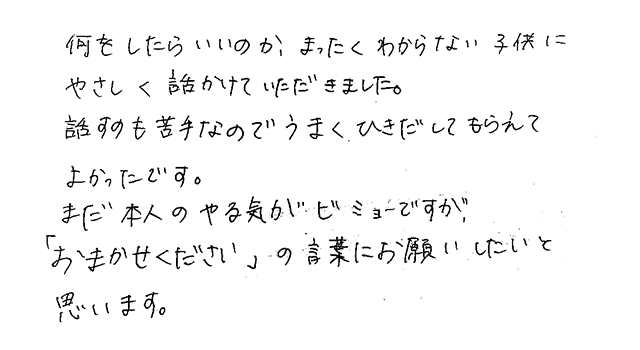 何をしたらいいのか、まったくわからない子供に
やさしく話かけていただきました。
話すのも苦手なのでうまくひきだしてもらえて
よかったです。
まだ本人のやる気がビミョーですが、
「おまかせください」の言葉にお願いしたいと
思います。